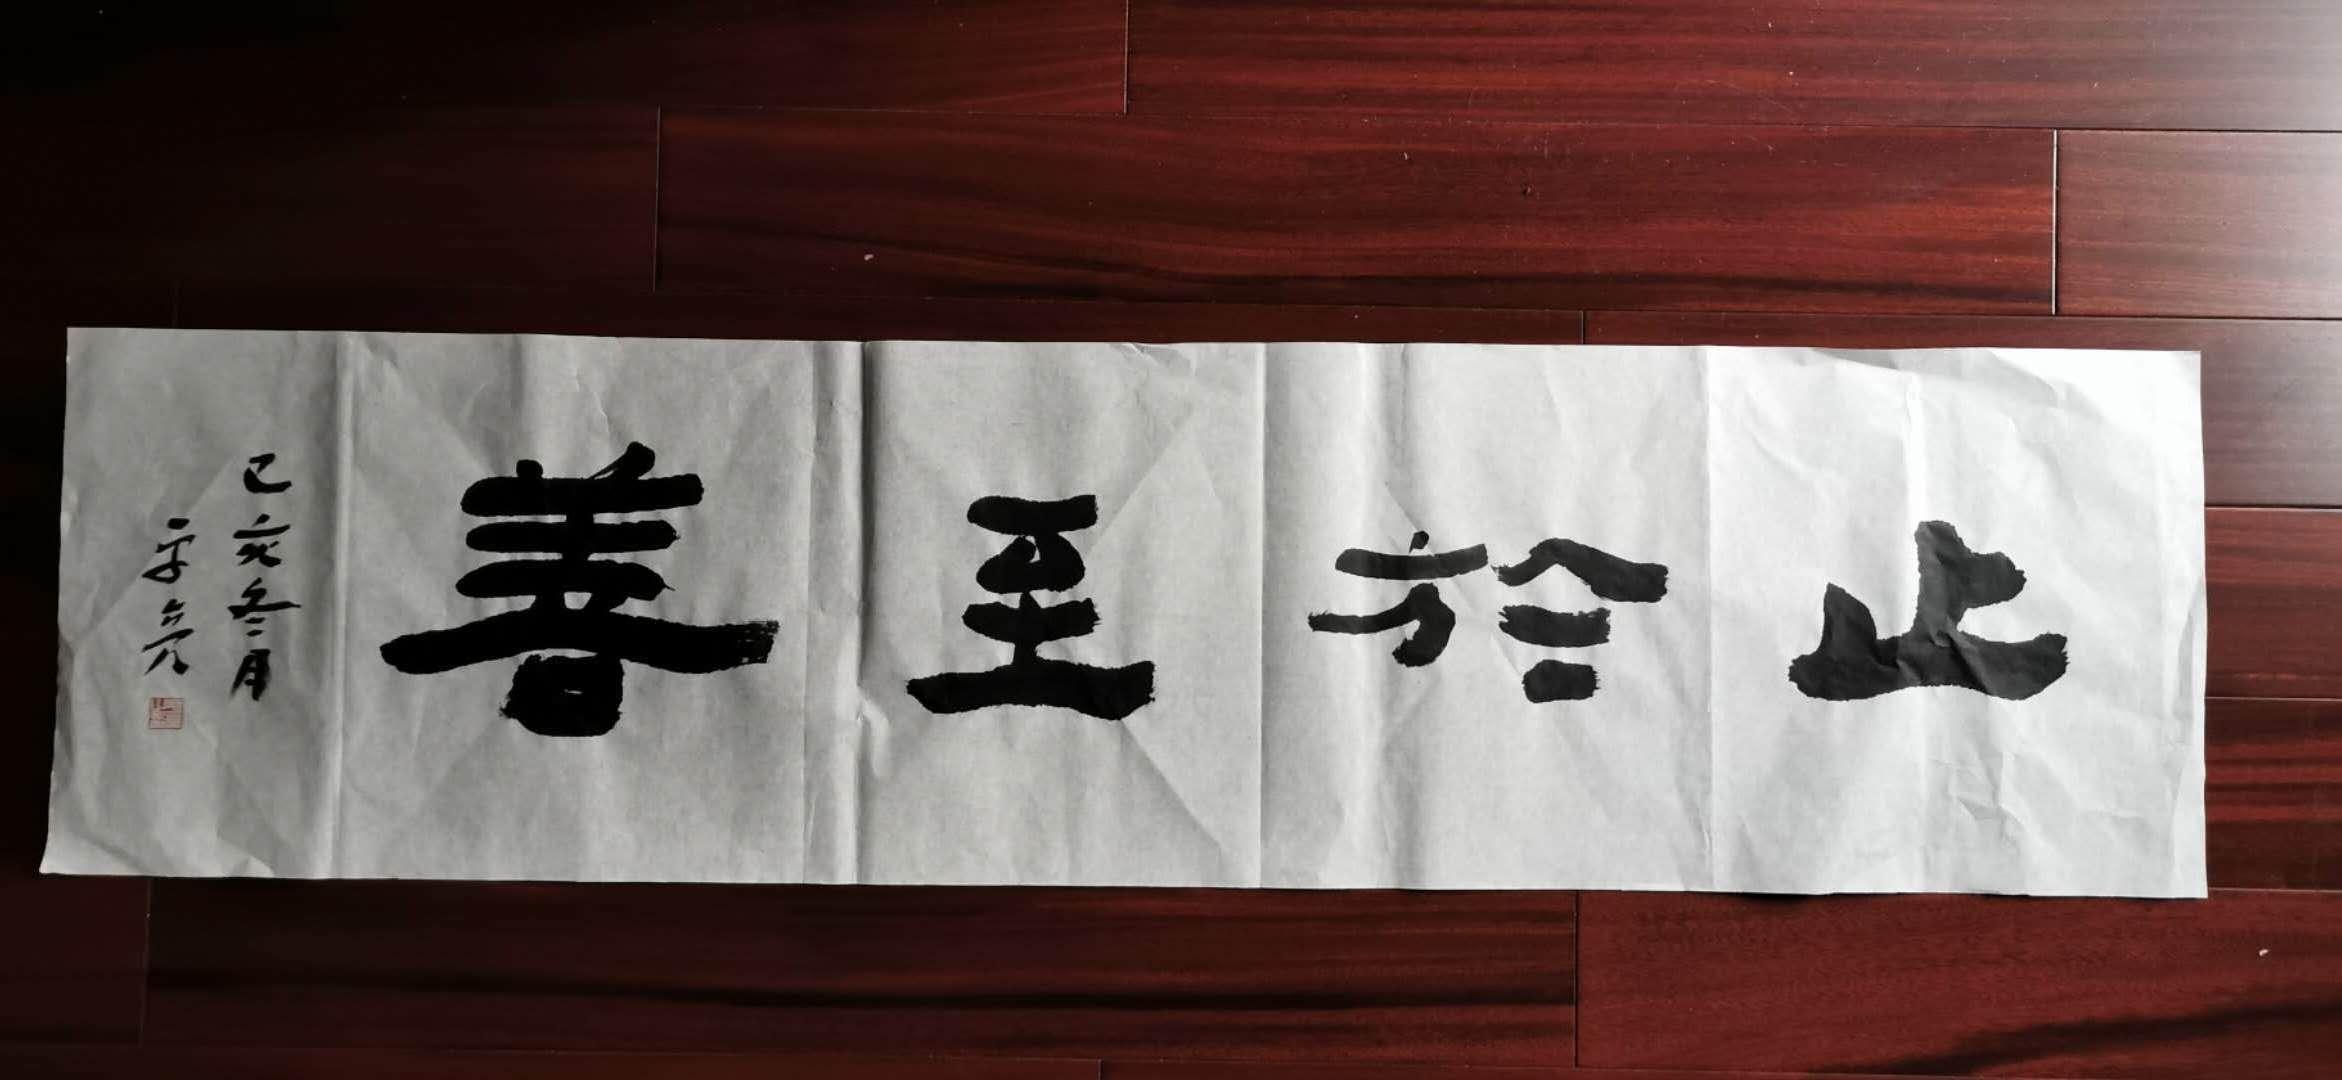 止於至善
己亥冬月
亮